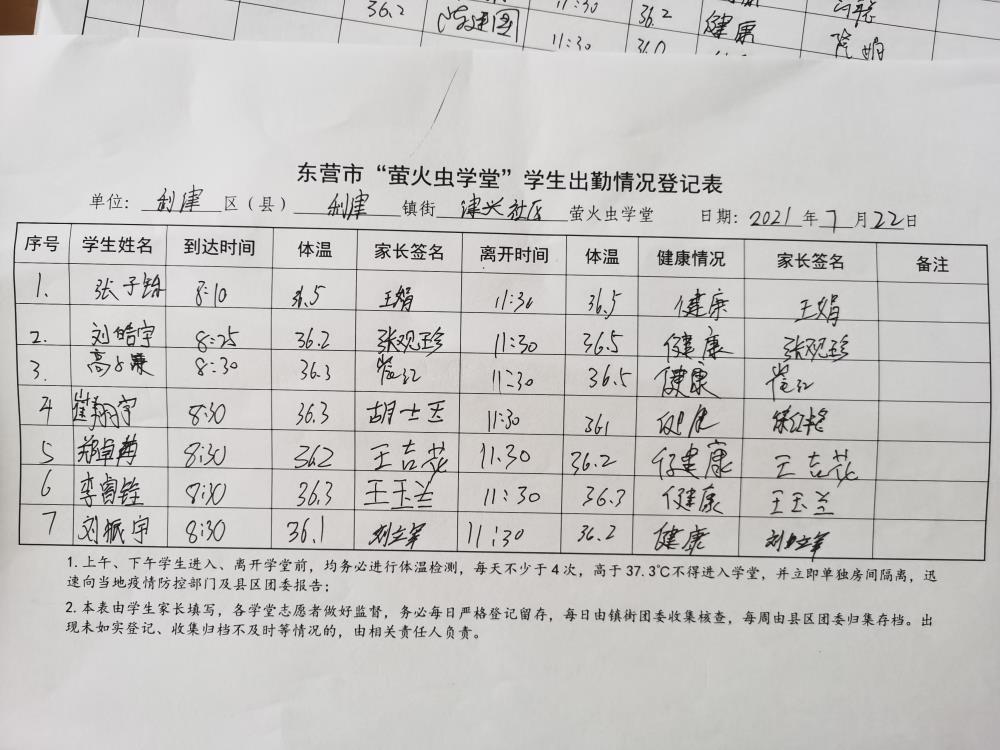 36.2 11:30 36.2 健康
11:30 36.0
东营市“萤火虫学堂”学生出勤情况登记表
单位: 利津 区（县） 利津 镇街 津兴社区 萤火虫学堂 日期: 2021 年 7 月 22 日
序号 学生姓名 到达时间 体温 家长签名 离开时间 体温 健康情况 家长签名 备注
1. 张子铄 8:10 36.5 王娟 11:30 36.5 健康 王娟
2. 刘皓宇 8:25 36.2 张观珍 11:30 36.5 健康 张观珍
3. 8:30 36.3 11:30 36.5 健康
4 崔翔宇 8:30 36.3 胡士玉 11:30 361 健康
5 8:30 362 王吉花 11:30 36.2 健康 王吉花
6 李睿铨 8:30 36.3 王玉兰 11:30 36.3 健康 王玉兰
7 刘振宇 8:30 36.1 刘立军 11:30 36.2 健康 刘立军
1. 上午、下午学生进入、离开学堂前，均务必进行体温检测，每天不少于 4 次，高于 37.3℃不得进入学堂，并立即单独房间隔离，迅
速向当地疫情防控部门及县区团委报告；
2. 本表由学生家长填写，各学堂志愿者做好监督，务必每日严格登记留存，每日由镇街团委收集核查，每周由县区团委归集存档。出
现未如实登记、收集归档不及时等情况的，由相关责任人负责。